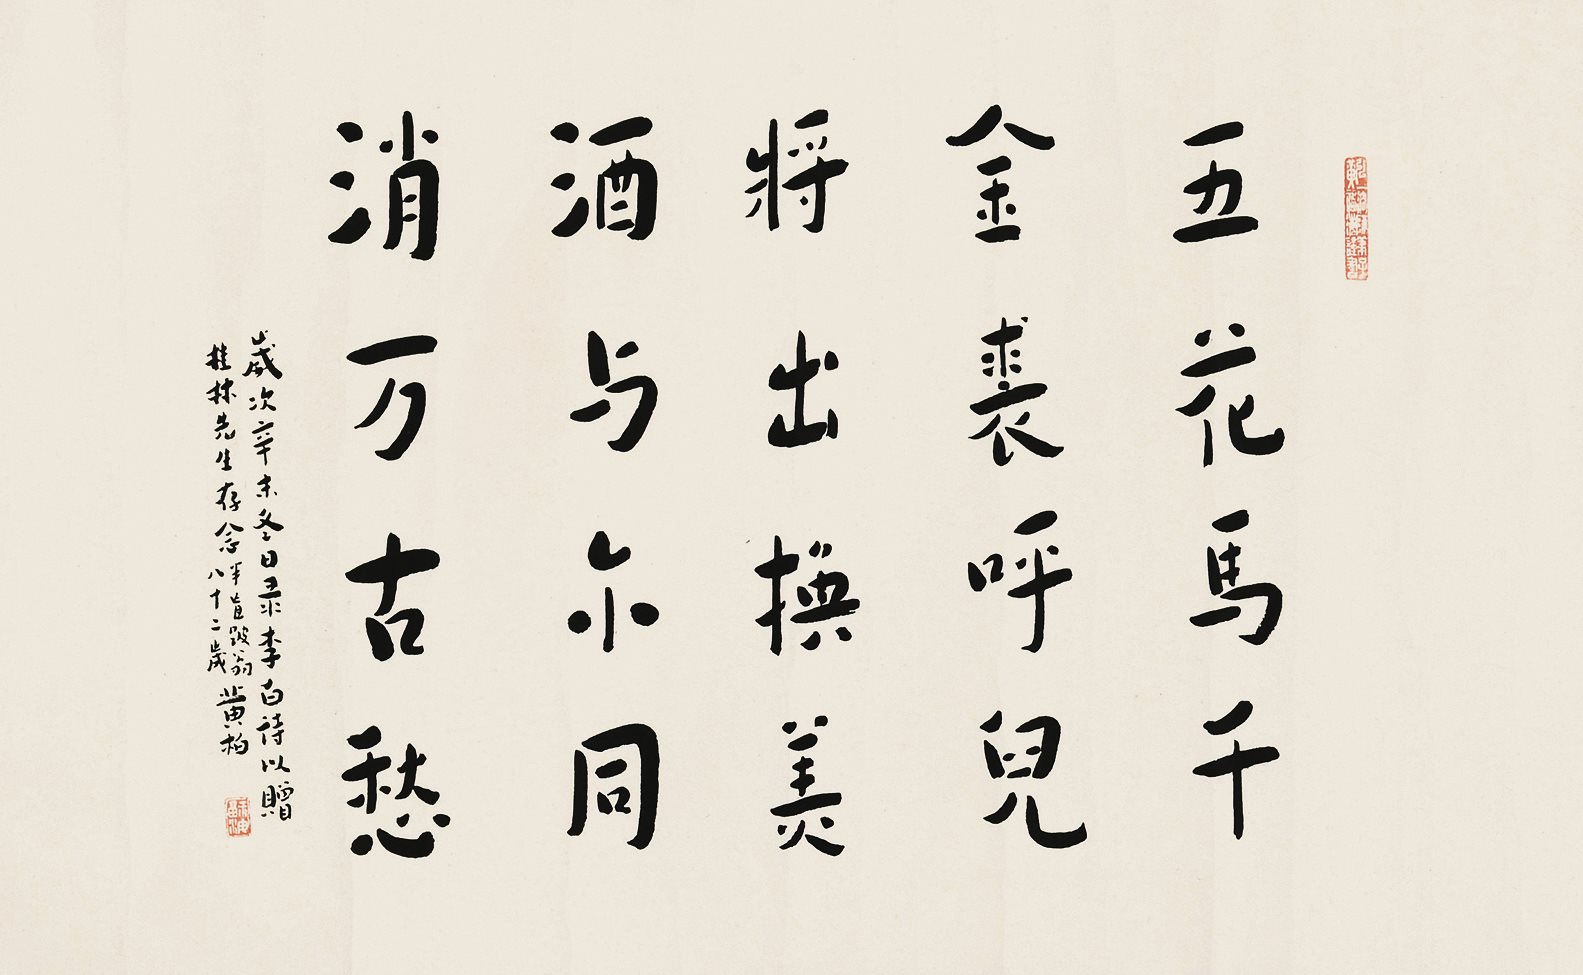 五花馬千
金裘呼兒
將出換美
酒与尒同
消万古愁
歲次辛未冬日录李白詩以贈
桂林先生存念半盲跛翁黄柏
八十二歲